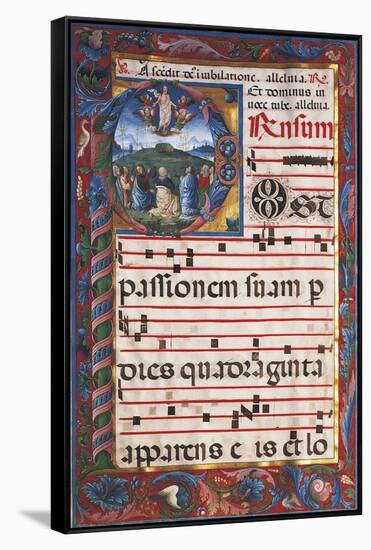 V. Ascēdit dē in iubilatione. alleluia. R.
Et dominus in
uoce tube. alleluia.
Rnsum
Ost
passionem suam p
dies quadraginta
apparens e is et lo